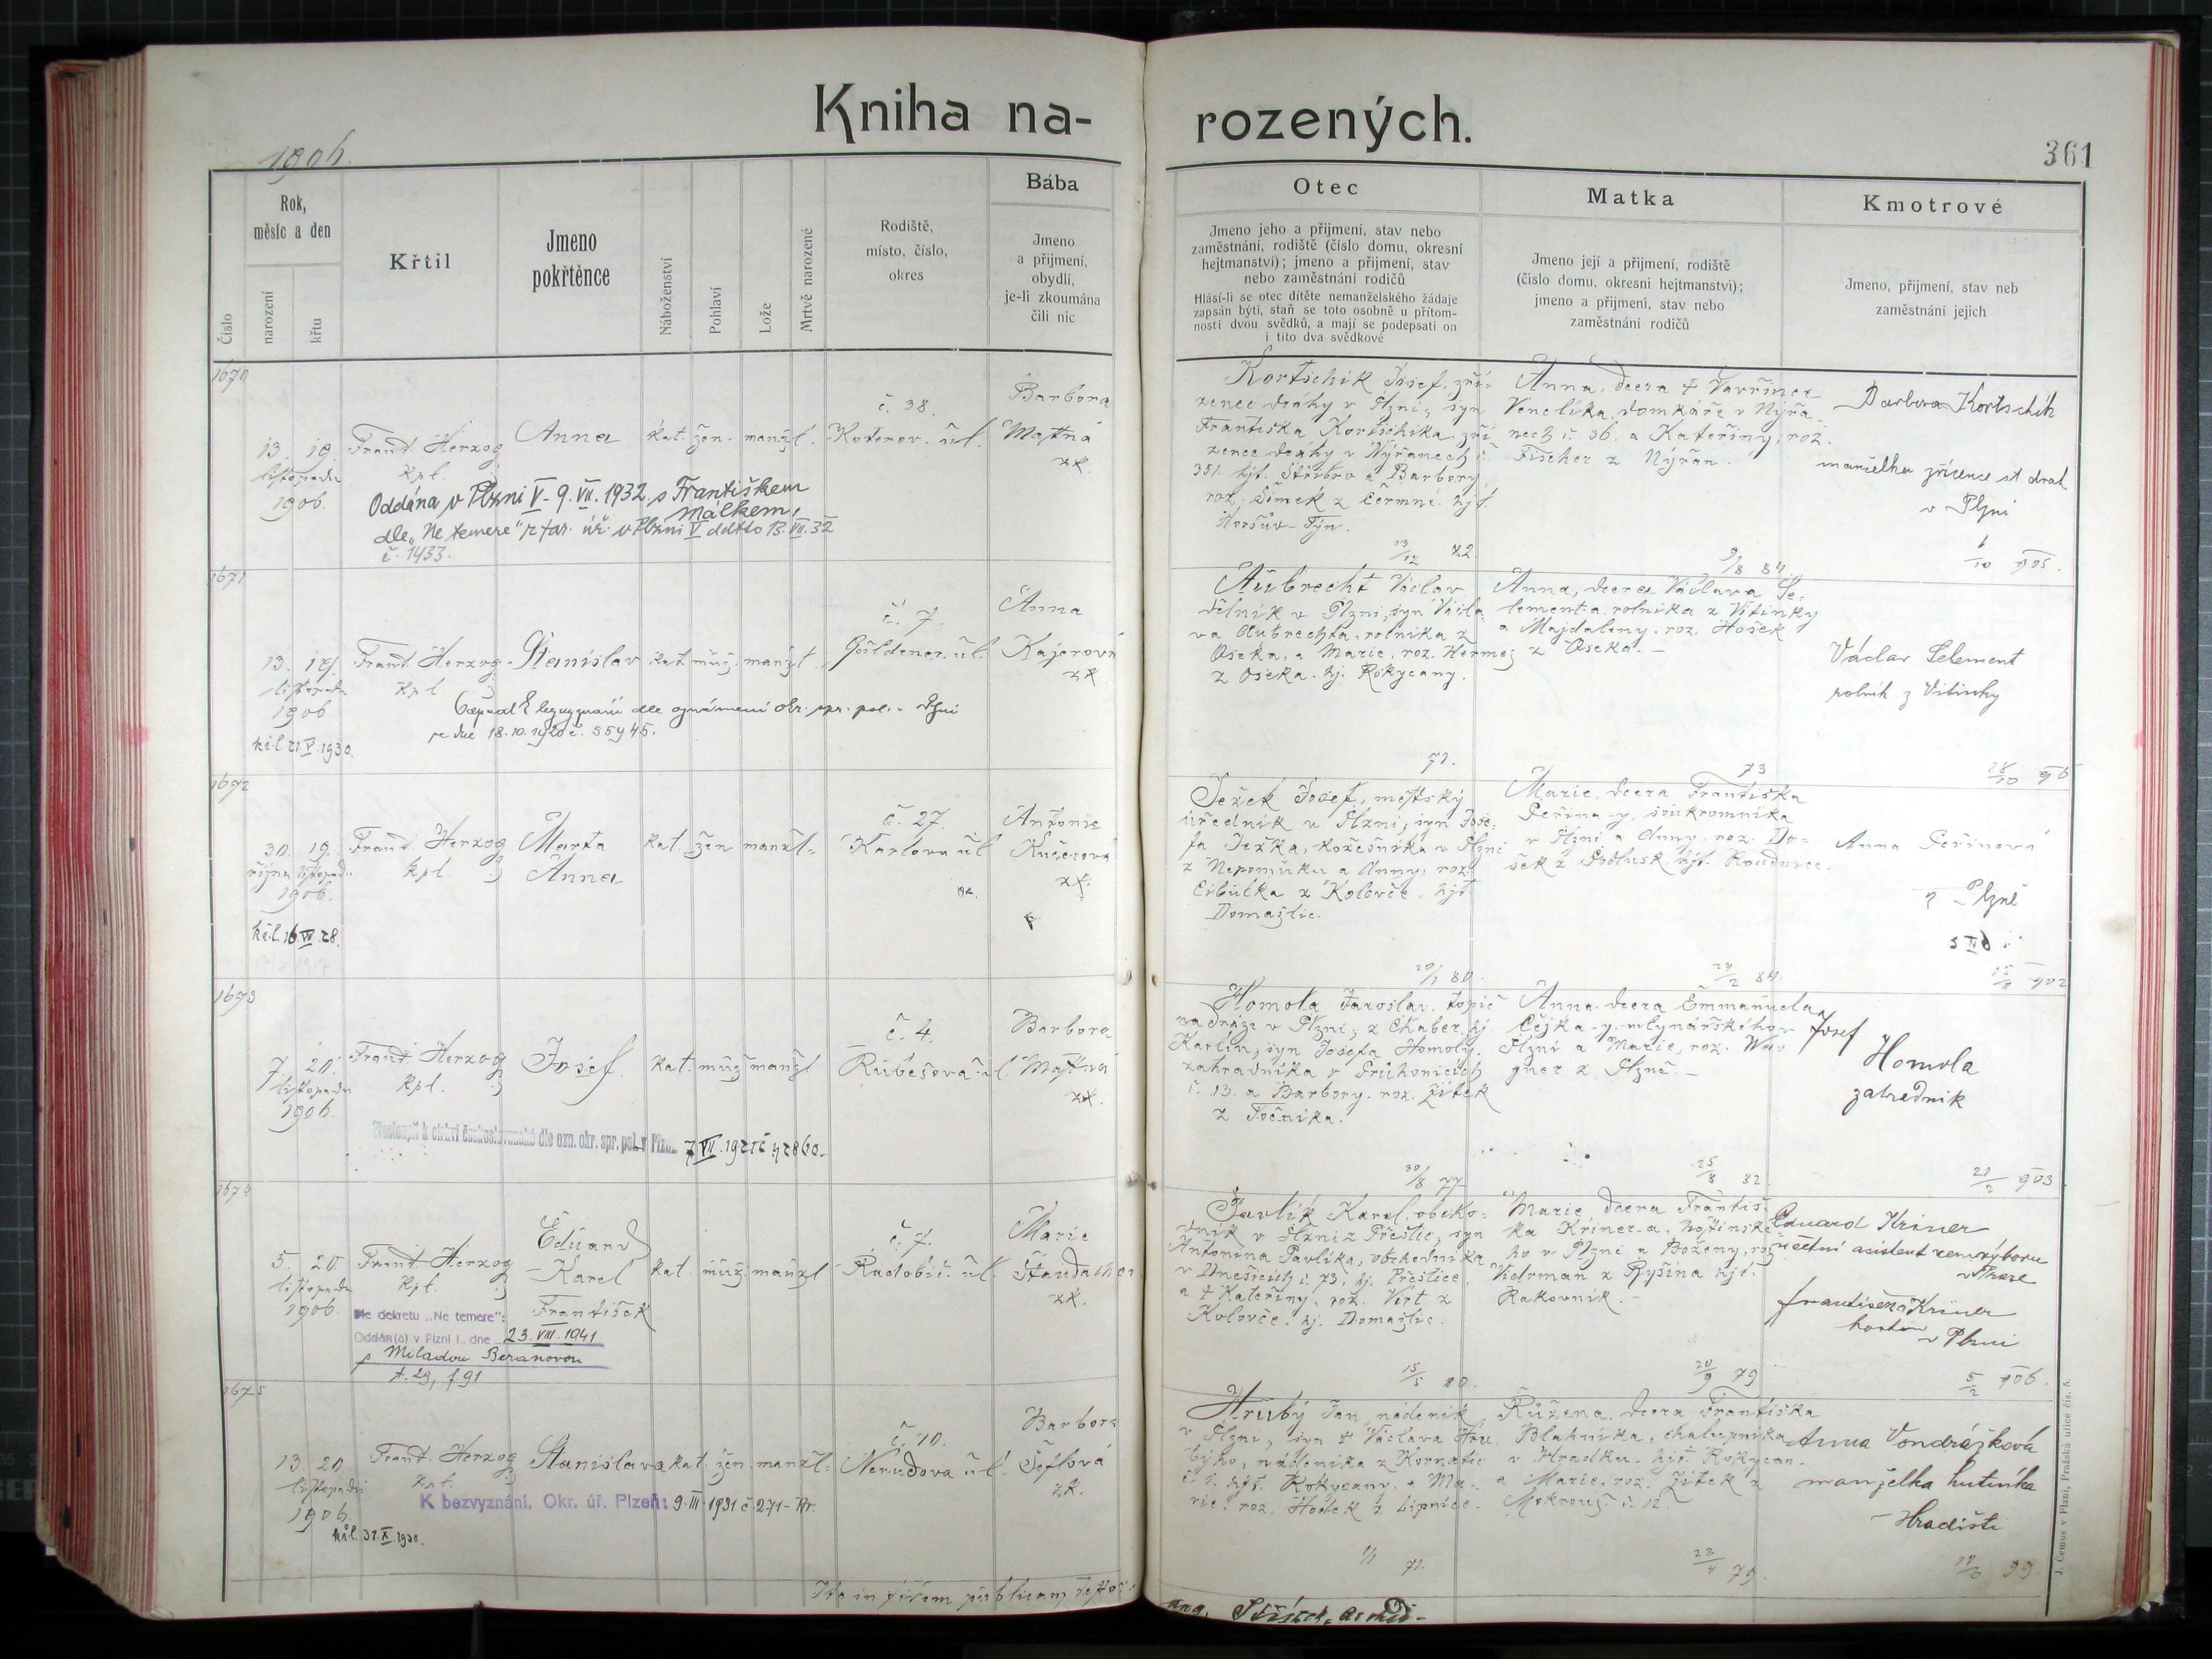 Kniha na-
rozených.
1906.
361
Číslo
Rok,
měsíc a den
narození
křtu
Křtil
Jmeno
pokřtěnce
Náboženství
Pohlaví
Lože
Mrtvě narozené
Rodiště,
místo, číslo,
okres
Bába
Jmeno
a přijmení,
obydlí,
je-li zkoumána
čili nic
Otec
Jmeno jeho a přijmení, stav nebo
zaměstnání, rodiště (číslo domu, okresní
hejtmanství); jmeno a přijmení, stav
nebo zaměstnání rodičů
Hlásí-li se otec dítěte nemanželského žádaje
zapsán býti, staň se toto osobně u přítom-
nosti dvou svědků, a mají se podepsati on
i tito dva svědkové
Matka
Jmeno její a přijmení, rodiště
(číslo domu, okresní hejtmanství);
jmeno a přijmení, stav nebo
zaměstnání rodičů
Kmotrové
Jmeno, přijmení, stav neb
zaměstnání jejich
1670
13. 19.
listopadu
1906.
Frant. Herzog
kpl.
Anna
kat. žen. manžl.
č. 38.
Koterov. ul.
Barbora
Mastná
zk.
Oddána v Plzni V 9. VII. 1932 s Františkem
Málkem,
dle „Ne temere" z far. úř. v Plzni V ddtto 13. VII. 32
č. 1433.
Kortschik Josef, zří-
zenec dráhy v Plzni, syn
Františka Kortschika, zří
zence dráhy v Nýřanech č.
351. hjt. Stříbro a Barbory,
roz. Šimek z Čermné. hjt.
Horšův-Týn.
13/12 82.
Anna, dcera † Vavřince
Venclíka, domkáře v Nýřa
nech č. 36. a Kateřiny, roz.
Fischer z Nýřan.
9/8 84.
Barbora Kortschik
manželka zřízence st drah
v Plzni
1671
13. 19.
listopadu
1906
Frant. Herzog
kpl
Stanislav
kat. muž. manžl.
č. 7.
Göldener. ul.
Anna
Kajerová
zk.
dle oznámení okr. spr. pol. v Plzni
ze dne 18. 10. 1920 č. 55945.
kř.l. 21. V. 1930.
Aubrecht Václav
dělník v Plzni, syn Václa-
va Aubrechta, rolníka z
Oseka, a Marie, roz. Hermes
z Oseka. hj. Rokycany.
71.
Anna, dcera Václava Se-
lementa, rolníka z Vitinky
a Majdaleny. roz. Hošek
z Oseka. -
73
Václav Selement
rolník z Vitinky
1672
30. 19.
října listopadu
1906.
Frant. Herzog
kpl.
Marta
Anna
kat. žen manžl.
č. 27.
Karlova ul
Antonie
Kučerová
zk.
kř.l. 16. VII. 28.
Ježek Josef, městský
úředník v Plzni, syn Jose-
fa Ježka, kožešníka v Plzni
z Nepomuku a Anny, roz.
Cibulka z Koloveče. hjt.
Domažlic.
20/1 80.
Marie, dcera Františka
Peřina-y, soukromníka
v Plzni a Anny, roz. Do-
šek z Podlusk, hjt. Roudnice.
24/2 84.
Anna Peřinová
z Plzně
1673
7. 20.
listopadu
1906.
Frant. Herzog
kpl.
Josef
kat. muž manžl
č. 4.
Rubešova ul.
Barbora
Mastná
zk.
Přestoupil k církvi československé dle ozn. okr. spr. pol. v Plzni
Homola Jaroslav, topič
na dráze v Plzni, z Chaber, hj.
Karlín, syn Josefa Homoly,
zahradníka v Průhonicích
č. 13. a Barbory. roz. Žitek
z Točníka.
30/8 77
Anna, dcera Emmanuela
Čejka-y, mlynářského v
Plzni a Marie, roz. Wag
gner z Plzně. -
25/8 82
Josef
Homola
zahradník
21/2 903
1674
5. 20.
listopadu
1906.
Frant. Herzog
kpl.
Eduard
Karel
František
kat. muž. manžl
č. 7.
Radobič. ul.
Marie
Staudacher
zk.
Dle dekretu „Ne temere":
Oddán(a) v Plzni I., dne 23. VIII. 1941
s Miladou Beranovou
t. 29, f 91
Pavlík Karel, obcho-
dník v Plzni z Přeštic, syn
Antonína Pavlíka, obchodníka
v Dnešicích č. 73, hj. Přeštice,
a † Kateřiny, roz. Virt z
Koloveče. hj. Domažlic.
15/5 80.
Marie, dcera Františ-
ka Křiner-a, hostinské-
ho v Plzni a Boženy, roz.
Vidrman z Ryšína hjt.
Rakovník. -
20/9 79
Eduard Křiner
účetní asistent zem. výboru
v Praze
František Křiner
hostin v Plzni
5/2 906.
1675
13. 20.
listopadu
1906.
Frant. Herzog
kpl.
Stanislava
kat. žen. manžl.
č. 10.
Nerudova ul.
Barbora
Šeflová
zk.
K bezvyznání, Okr. úř. Plzeň: 9. III. 1931 č. 271-
kř.l. 31. X. 1930.
Hrubý Jan, nádeník
v Plzni, syn † Václava Hru
býho, nádeníka z Kornatic
č. 1. hjt. Rokycany, a Ma-
rie, roz. Hodek z Lipnice.
71.
Růžena, dcera Františka
Blahníka, chalupníka
v Hrádku, hjt. Rokycan.
a Marie, roz. Žitek z
Mokrouš č. 12.
79.
Anna Vondrážková
manželka hutníka
Hradišti
99
Ita in fidem publicam
J. Cemus v Plzni, Pražská ulice čís. 8.